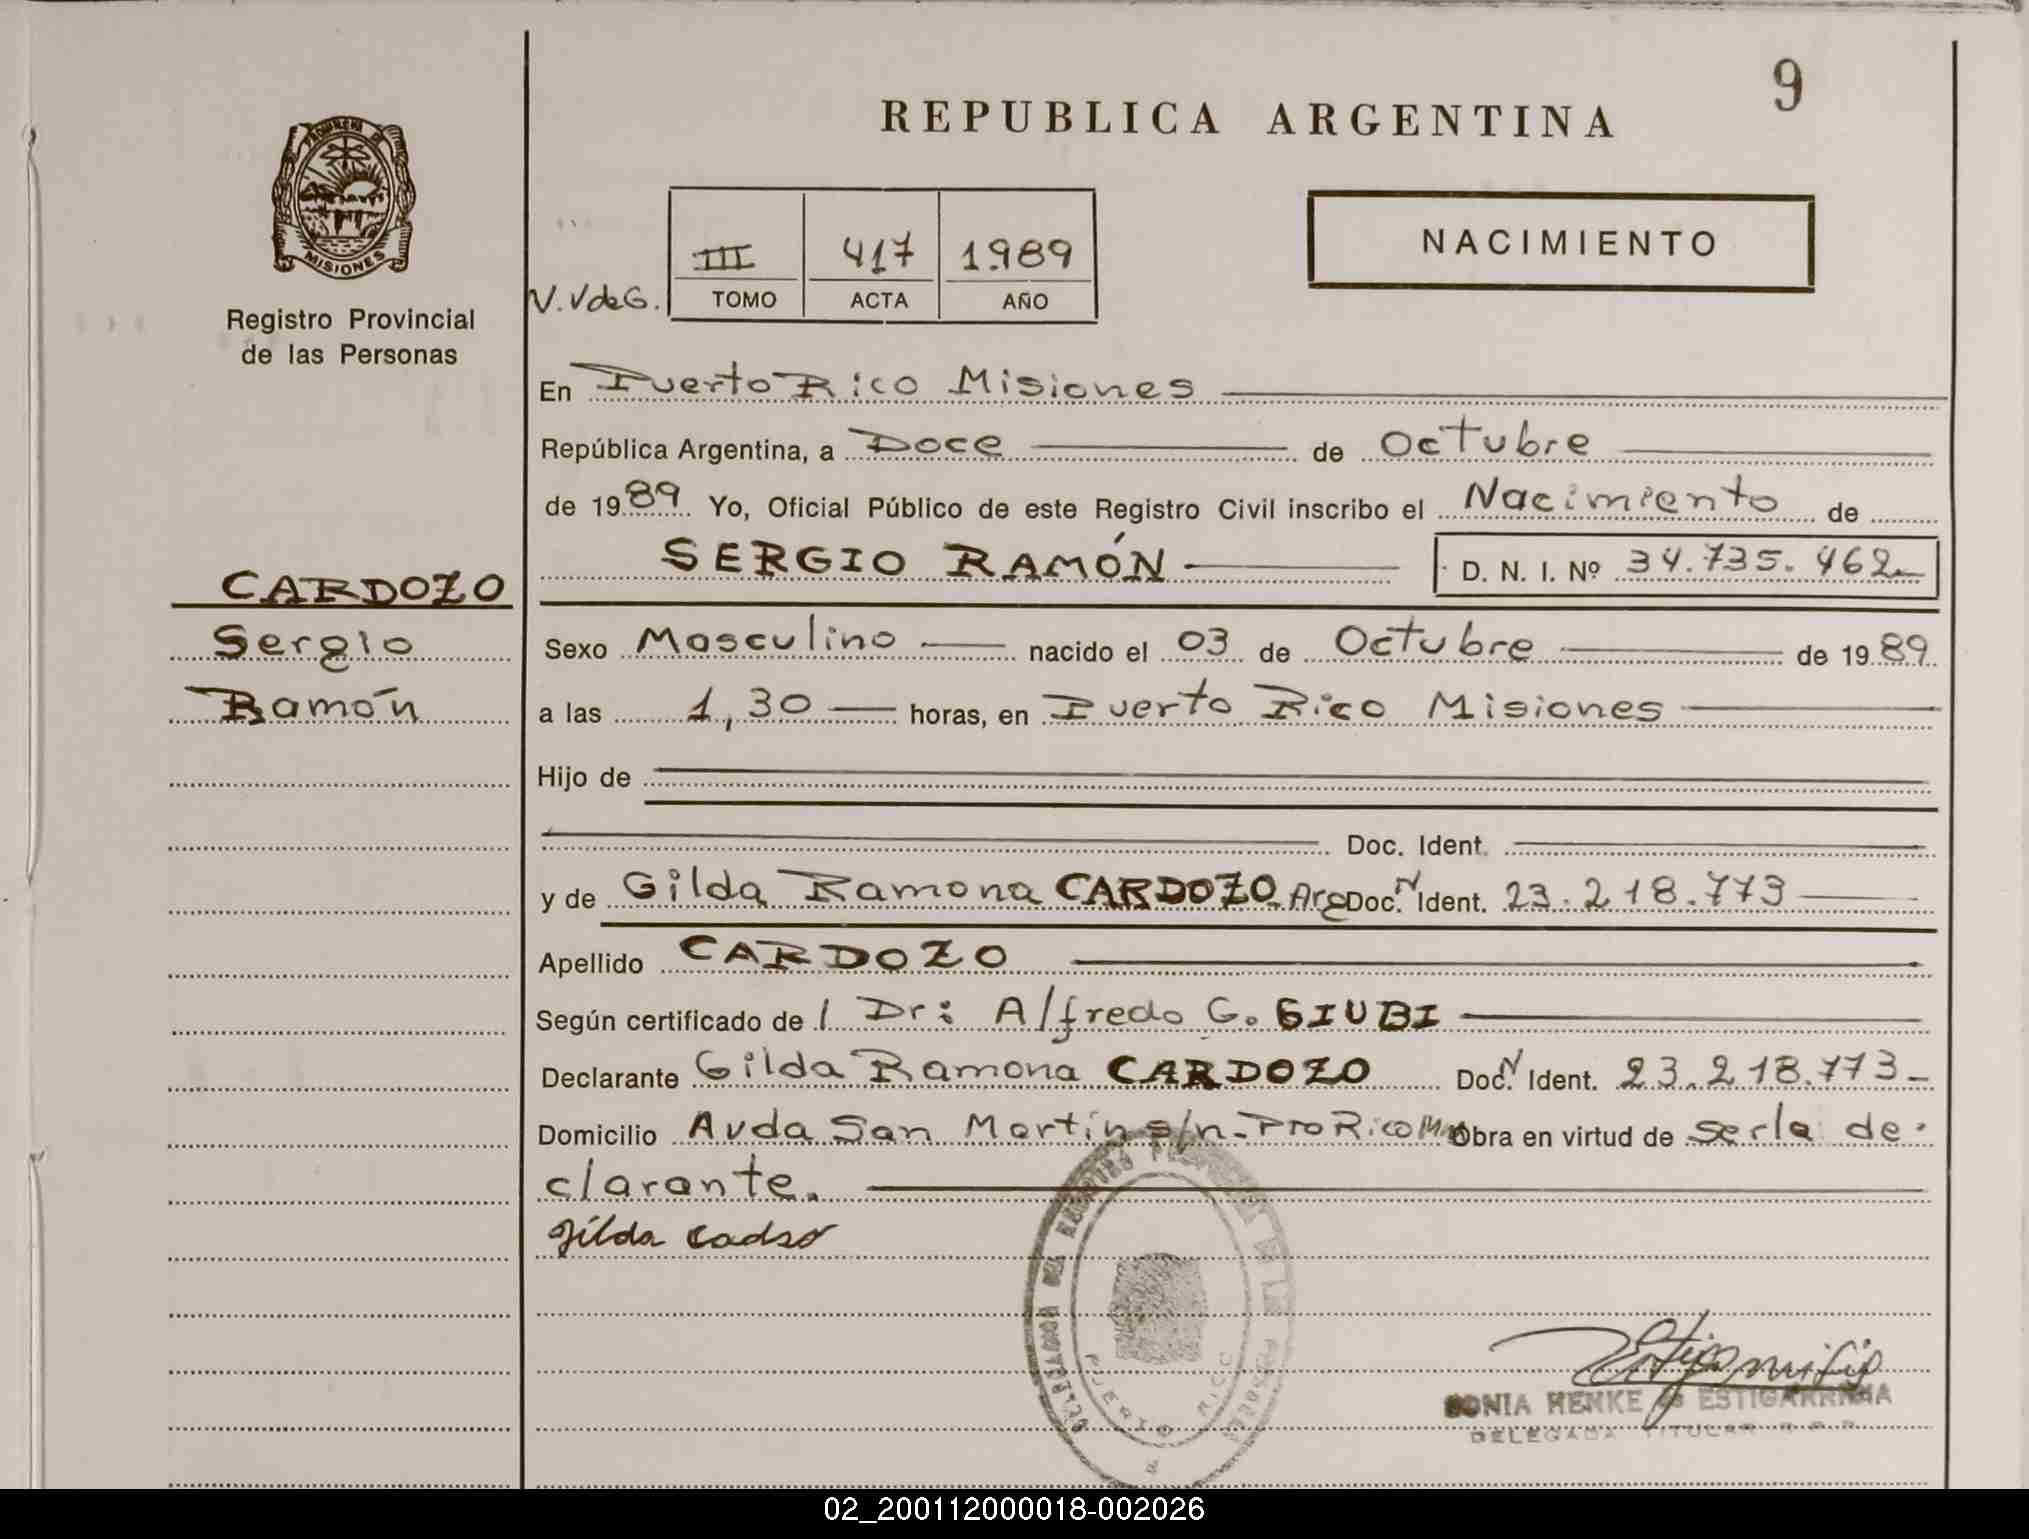 9
REPUBLICA ARGENTINA
PROVINCIA DE
MISIONES
Registro Provincial
de las Personas
V. V de G.
III 417 1989
TOMO ACTA AÑO
NACIMIENTO
En Puerto Rico Misiones
República Argentina, a Doce de Octubre
de 1989 Yo, Oficial Público de este Registro Civil inscribo el Nacimiento de
SERGIO RAMÓN D. N. I. Nº 34.735.462
CARDOZO
Sergio
Ramón
Sexo Masculino nacido el 03 de Octubre de 1989
a las 1,30 horas, en Puerto Rico Misiones
Hijo de
Doc. Ident.
y de Gilda Ramona CARDOZO Arg Doc. N Ident. 23.218.773
Apellido CARDOZO
Según certificado de / Dr: Alfredo G. GIUBI
Declarante Gilda Ramona CARDOZO Doc. N Ident. 23.218.773
Domicilio Avda San Martín s/n. Pto Rico Mnes Obra en virtud de ser la de-
clarante.
Gilda Cadso
DELEGACION DEL REGISTRO PROVINCIAL DE LAS PERSONAS
PUERTO RICO
SONIA HENKE de ESTIGARRIBIA
DELEGADA TITULAR R.P.P.
02_200112000018-002026